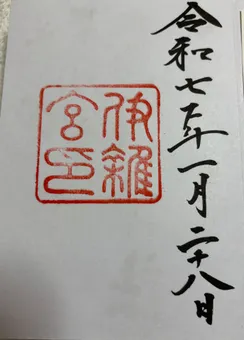 令和七年一月二十八日
伊雜
宮印